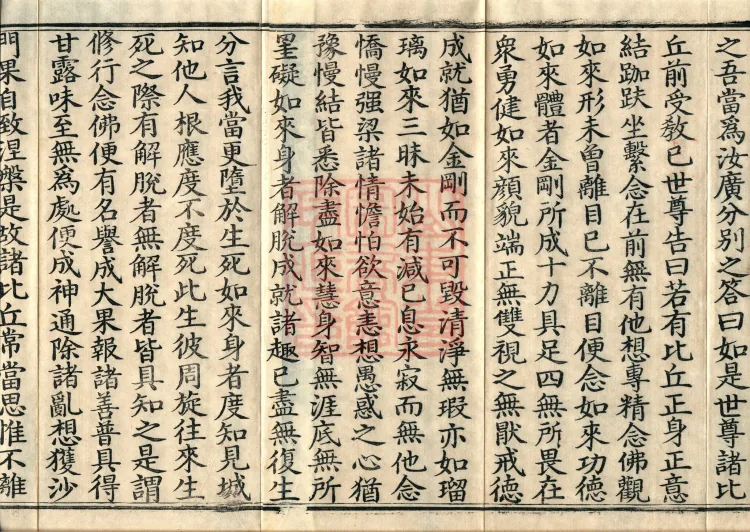 之吾當爲汝廣分別之答曰如是世尊諸比
丘前受教已世尊告曰若有比丘正身正意
結跏趺坐繫念在前無有他想專精念佛觀
如來形未曾離目已不離目便念如來功德
如來體者金剛所成十力具足四無所畏在
衆勇健如來顔貌端正無雙視之無猒戒德
成就猶如金剛而不可毀清淨無瑕亦如瑠
璃如來三昧未始有減已息永寂而無他念
憍慢强梁諸情憺怕欲意恚想愚惑之心猶
豫慢結皆悉除盡如來慧身智無涯底無所
罣礙如來身者解脫成就諸趣已盡無復生
分言我當更墮於生死如來身者度知見城
知他人根應度不度死此生彼周旋往來生
死之際有解脫者無解脫者皆具知之是謂
修行念佛便有名譽成大果報諸善普具得
甘露味至無為處便成神通除諸亂想獲沙
門果自致涅槃是故諸比丘常當思惟不離